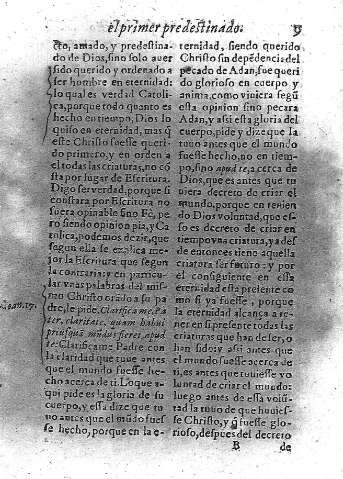 el primer predestinado. 9
cto, amado, y predestina-
do de Dios, sino solo auer
sido querido y ordenado a
ser hombre en eternidad:
lo qual es verdad Catoli-
ca, porque todo quanto es
hecho en tiempo, Dios lo
quiso en eternidad, mas q̃
este Christo fuesse queri-
do primero, y en orden a
el todas las criaturas, no cõ
sta por lugar de Escritura.
Digo ser verdad, porque si
constara por Escritura no
fuera opinable sino Fè, pe-
ro siendo opinion pia, y Ca
tolica, podemos dezir, que
segun ella se explica me-
jor la Escritura que segun
la contraria: y en particu-
lar vnas palabras del mis-
Ioan. 17. mo Christo orãdo a su pa
dre, le pide. Clarifica me Pa
ter, claritate, quam habui
priusquã mũdus fieret, apud
te: Clarificame Padre con
la claridad que tuue antes
que el mundo fuesse he-
cho acerca de ti. Lo que a-
qui pide es la gloria de su
cuerpo, y essa dize que tu
uo antes que el mũdo fues
se hecho, porque en la e-
ternidad, siendo querido
Christo sin depẽdencia del
pecado de Adan, fue queri
do glorioso en cuerpo y
anima, como viniera segũ
esta opinion sino pecara
Adan, y assi esta gloria del
cuerpo, pide y dize que la
tuuo antes que el mundo
fuesse hecho, no en tiem-
po, sino apud te, acerca de
Dios, que es antes que tu
uiera decreto de criar el
mundo, porque en tenien
do Dios voluntad, que es-
so es decreto de criar en
tiempo vna criatura, ya des
de entonces tiene aquella
criatura ser futuro: y por
el consiguiente en essa
eternidad esta presente co
mo si ya fuesse, porque
la eternidad alcança a te-
ner en si presente todas las
criaturas que han de ser, o
han sido: y assi antes que
el mundo fuesse acerca de
ti, es antes que tuuiesse vo
luntad de criar el mundo:
luego antes de essa volũ-
tad la tuuo de que huuies-
se Christo, y q̃ fuesse glo-
rioso, despues del decreto
B de